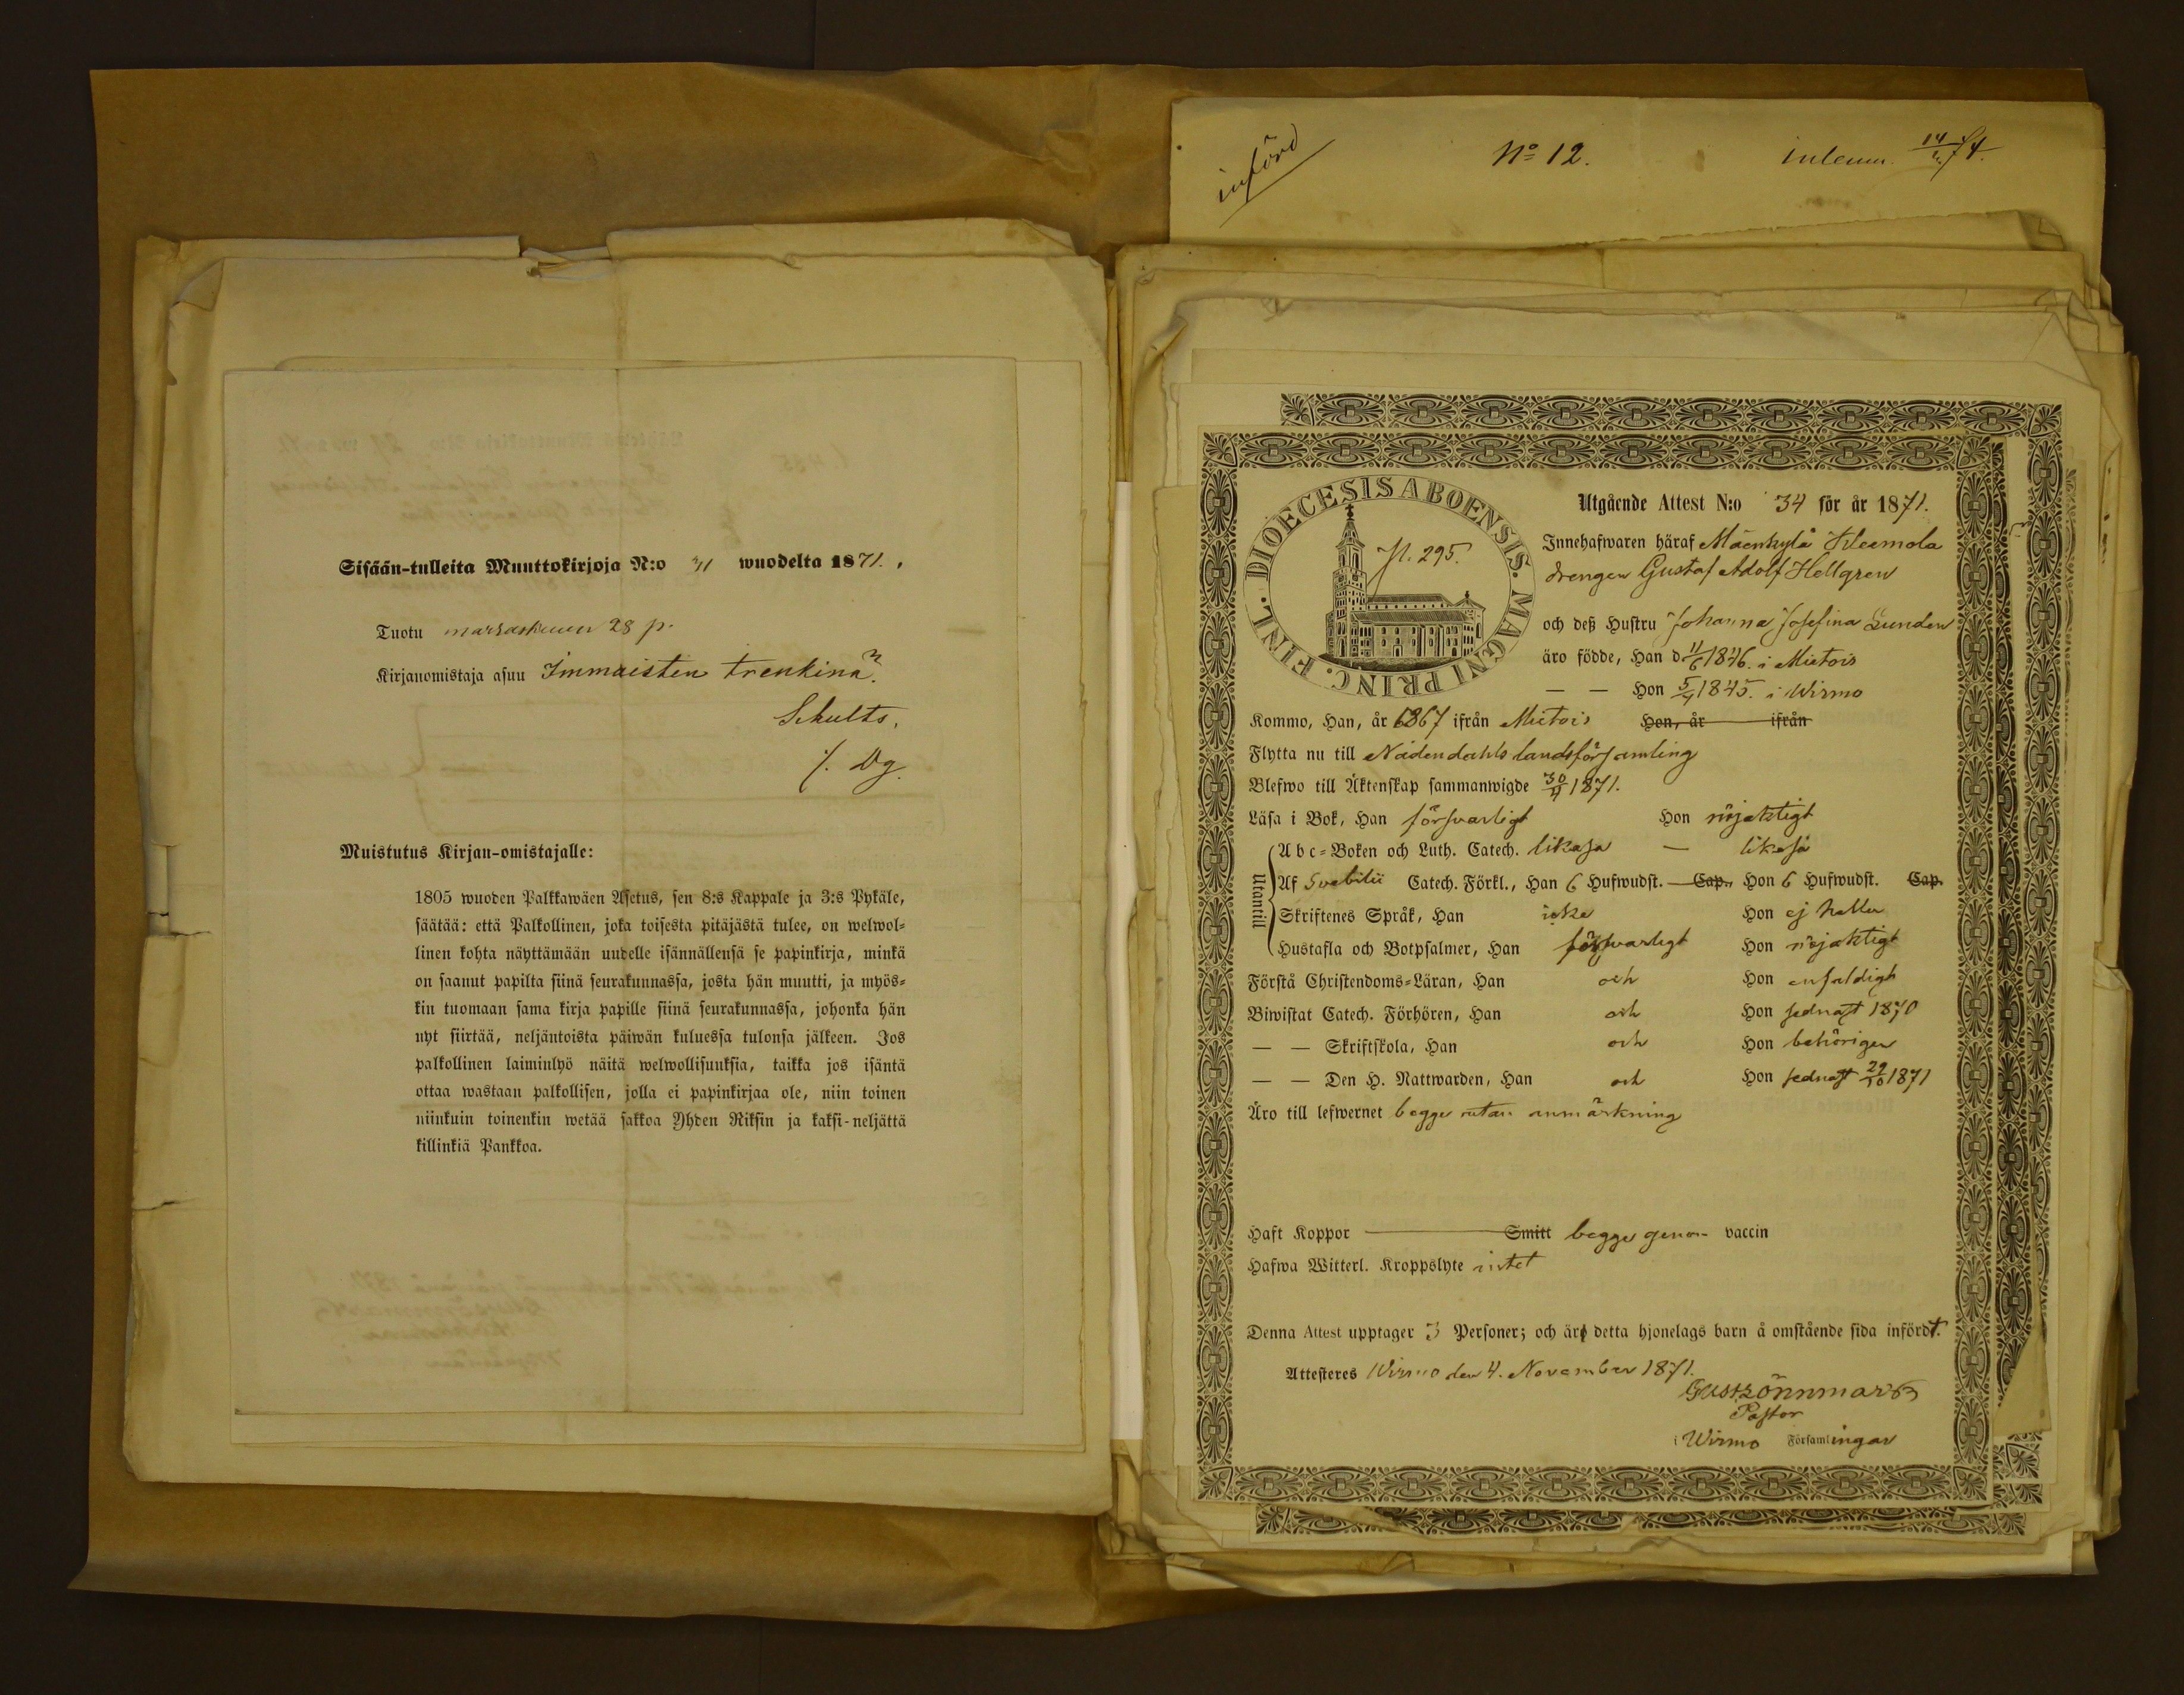 Sisään-tulleita Muuttokirjoja N:o 31 wuodelta 1871.
Tuotu marraskuun 28 p.
Kirjanomistaja asuu Immaisten trenkinä.
Schults.
Muistutus Kirjan-omistajalle:
1805 wuoden Palkkawäen Asetus, sen 8:s Kappale ja 3:s Pykäle,
säätää: että Palkollinen, joka toisesta pitäjästä tulee, on welwol-
linen kohta näyttämään uudelle isännällensä se papinkirja, minkä
on saanut papilta siinä seurakunnassa, josta hän muutti, ja myös-
kin tuomaan sama kirja papille siinä seurakunnassa, johonka hän
nyt siirtää, neljäntoista päiwän kuluessa tulonsa jälkeen. Jos
palkollinen laiminlyö näitä welwollisuuksia, taikka jos isäntä
ottaa wastaan palkollisen, jolla ei papinkirjaa ole, niin toinen
niinkuin toinenkin wetää sakkoa Yhden Riksin ja kaksi-neljättä
killinkiä Pankkoa.
införd
No 12.
inlemn. 14/74.
DIOECESIS ABOENSIS. MAGNI PRINC. FINL.
P. 295.
Utgående Attest N:o 34 för år 1871.
Innehafwaren häraf Mäenkylä Kleemola
drengen Gustaf Adolf Hellgren
och deß Hustru Johanna Josefina Lunden
äro födde, Han d. 11/6 1846. i Mietois
— — Hon 5/4 1845. i Wirmo
Kommo, Han, år 1867 ifrån Mietois Hon, år ifrån
Flytta nu till Nådendahls landsförsamling
Blefwo till Äktenskap sammanwigde 30/4 1871.
Läsa i Bok, Han försvarligt Hon nöjaktigt
Utantill
Abc-Boken och Luth. Catech. likaså — likaså
Af Svebilii Catech. Förkl., Han 6 Hufwudst. — Cap. Hon 6 Hufwudst. Cap.
Skriftenes Språk, Han icke Hon ej heller
Hustafla och Botpsalmer, Han försvarligt Hon nöjaktigt
Förstå Christendoms-Läran, Han och Hon enfaldigt
Biwistat Catech. Förhören, Han och Hon sednast 1870
— — Skriftskola, Han och Hon behörigen
— — Den H. Nattwarden, Han och Hon sednast 29/10 1871
Äro till lefwernet begge utan anmärkning
Haft Koppor — Smitt begge genom vaccin
Hafwa Witterl. Kroppslyte intet
Denna Attest upptager 3 Personer; och är detta hjonelags barn å omstående sida infördt.
Attesteres Wirmo den 4. November 1871.
Gust Rönnmark
Pastor
i Wirmo Församlingar